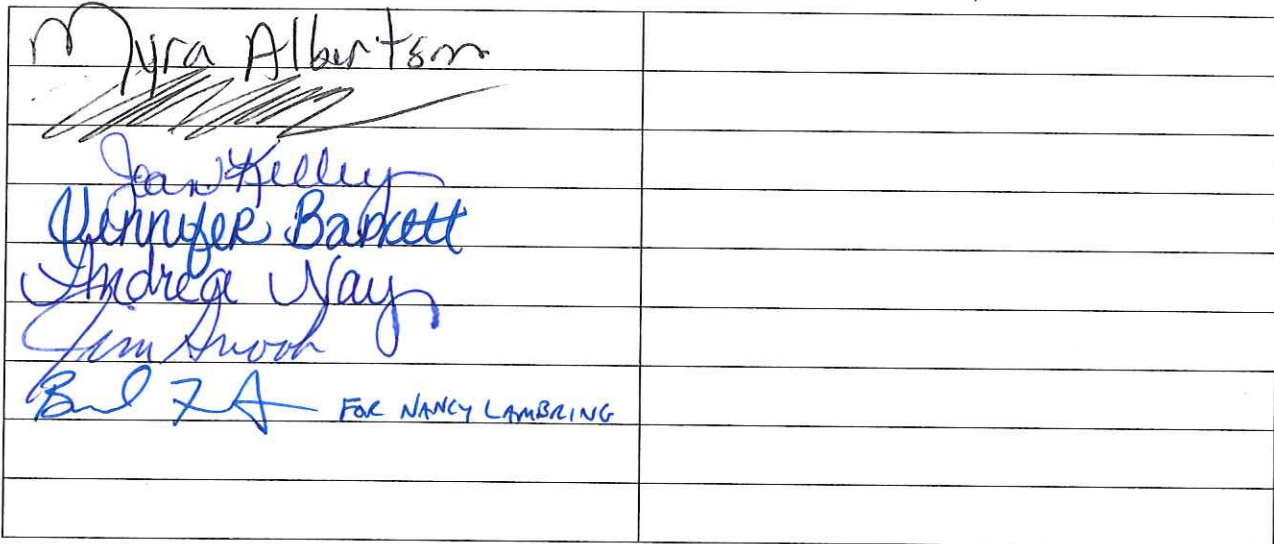 Myra Albertson
Jean Kelley
Jennifer Barkett
Andrea Nay
Jim Snook
FOR NANCY LAMBRING